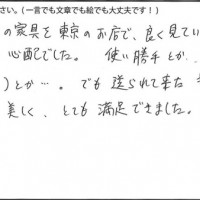 さい。(一言でも文章でも絵でも大丈夫です！)
の家具を東京のお店で、良く見てい
心配でした。 使い勝手とか…
)とか…。でも送られて来た
美しく、とても満足できました。